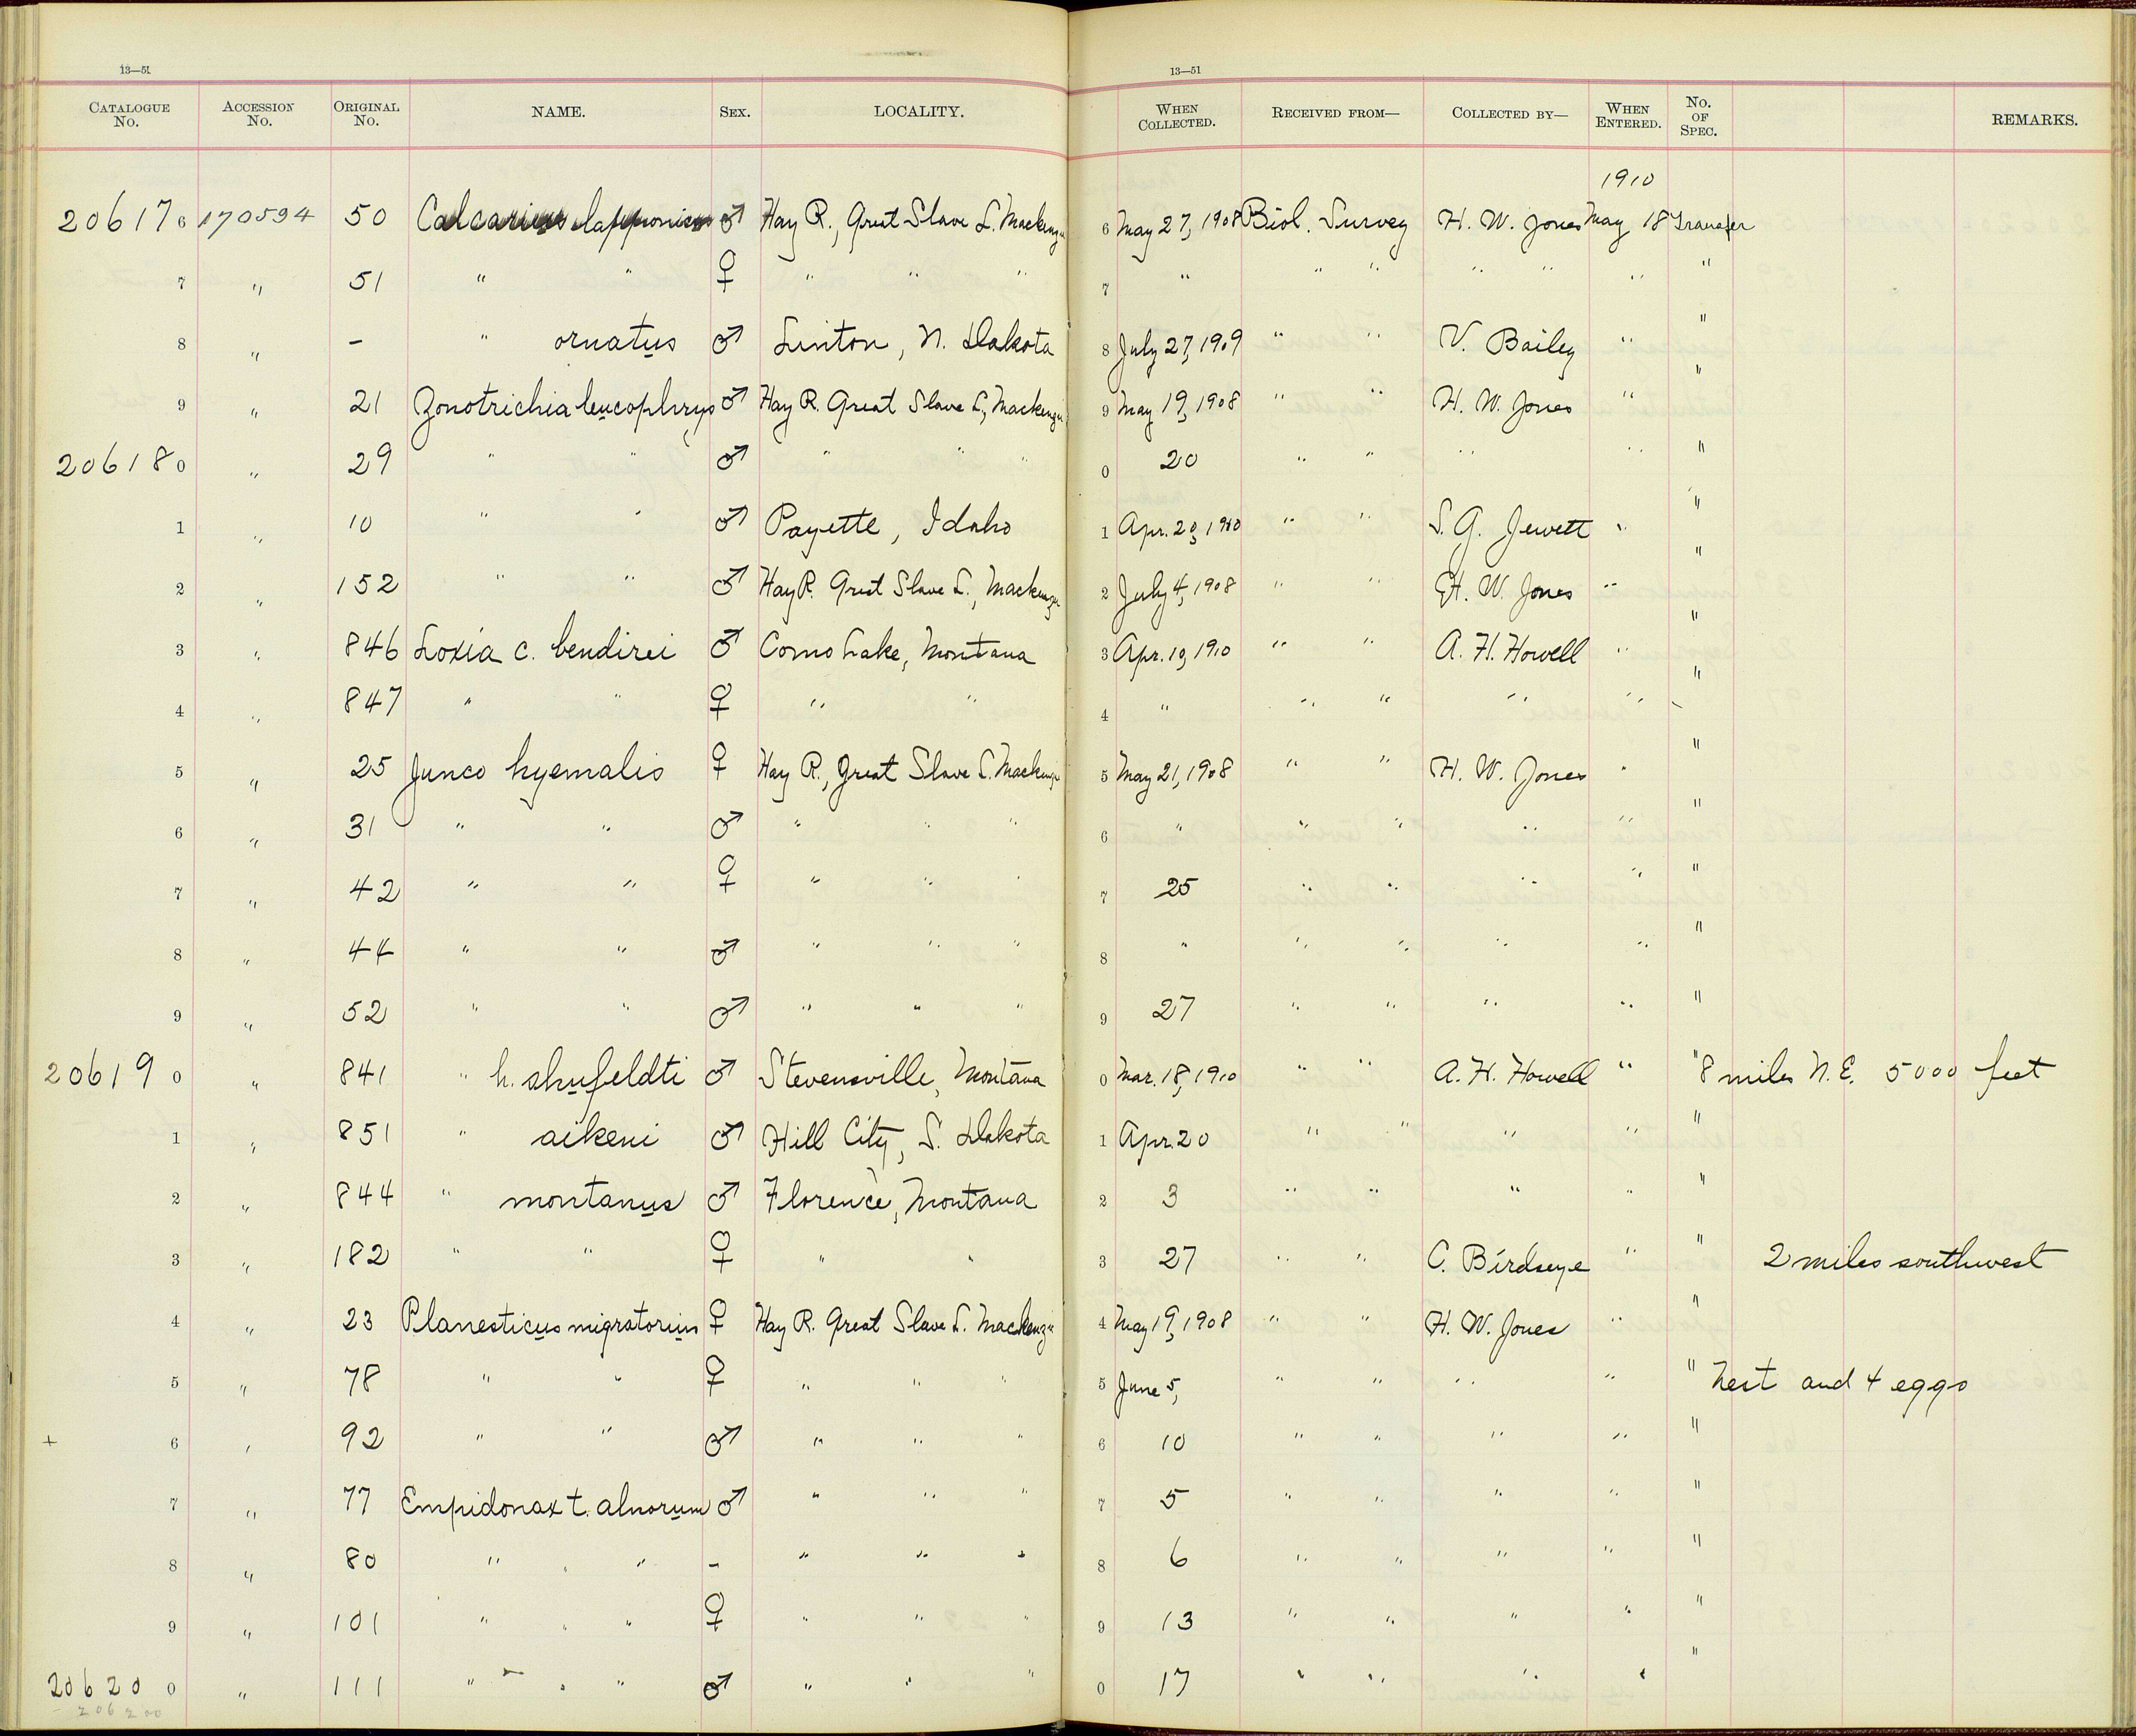 13—51
13—51
CATALOGUE No. ACCESSION No. ORIGINAL No. NAME. SEX. LOCALITY. WHEN COLLECTED. RECEIVED FROM— COLLECTED BY— WHEN ENTERED. No. OF SPEC. REMARKS.
1910
20617 6 170594 50 Calcarius lapponicus ♂ Hay R., Great Slave L. Mackenzie 6 May 27, 1908 Biol. Survey H. W. Jones May 18 Transfer
7 " 51 " " ♀ " " " 7 " " " " " " "
8 " - " ornatus ♂ Linton, N. Dakota 8 July 27, 1909 " " V. Bailey " "
9 " 21 Zonotrichia leucophrys ♂ Hay R. Great Slave L., Mackenzie 9 May 19, 1908 " " H. W. Jones " "
20618 0 " 29 " " ♂ " " " 0 20 " " " " " "
1 " 10 " " ♂ Payette, Idaho 1 Apr. 20, 1910 " " S. G. Jewett " "
2 " 152 " " ♂ Hay R. Great Slave L., Mackenzie 2 July 4, 1908 " " H. W. Jones " "
3 " 846 Loxia c. bendirei ♂ Como Lake, Montana 3 Apr. 19, 1910 " " A. H. Howell " "
4 " 847 " " ♀ " " 4 " " " " " "
5 " 25 Junco hyemalis ♀ Hay R., Great Slave L. Mackenzie 5 May 21, 1908 " " H. W. Jones " "
6 " 31 " " ♂ " " " 6 " " " " " "
7 " 42 " " ♀ " " " 7 25 " " " " "
8 " 44 " " ♂ " " " 8 " " " " " "
9 " 52 " " ♂ " " " 9 27 " " " " "
20619 0 " 841 " h. shufeldti ♂ Stevensville, Montana 0 Mar. 18, 1910 " " A. H. Howell " " 8 miles N.E. 5000 feet
1 " 851 " aikeni ♂ Hill City, S. Dakota 1 Apr. 20 " " " " "
2 " 844 " montanus ♂ Florence, Montana 2 3 " " " " "
3 " 182 " " ♀ " " 3 27 " " C. Birdseye " " 2 miles southwest
4 " 23 Planesticus migratorius ♀ Hay R. Great Slave L. Mackenzie 4 May 19, 1908 " " H. W. Jones " "
5 " 78 " " ♀ " " " 5 June 5, " " " " " Nest and 4 eggs
+ 6 " 92 " " ♂ " " " 6 10 " " " " "
7 " 77 Empidonax t. alnorum ♂ " " " 7 5 " " " " "
8 " 80 " " " - " " " 8 6 " " " " "
9 " 101 " " " ♀ " " " 9 13 " " " " "
20620 0 " 111 " " " ♂ " " " 0 17 " " " " "
206200